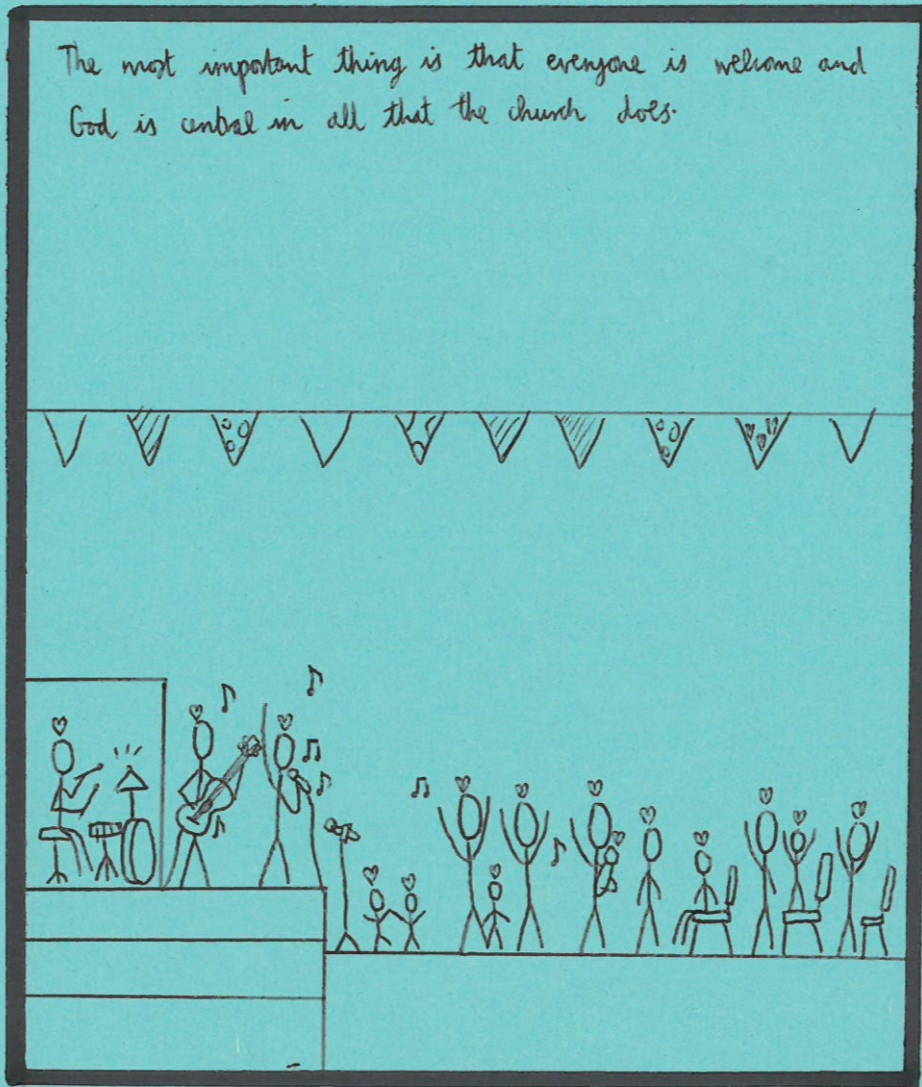 The most important thing is that everyone is welcome and
God is central in all that the church does.